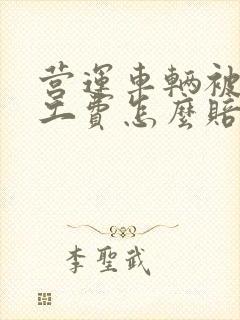 营運車輛被
工費怎麼賠
李聖武